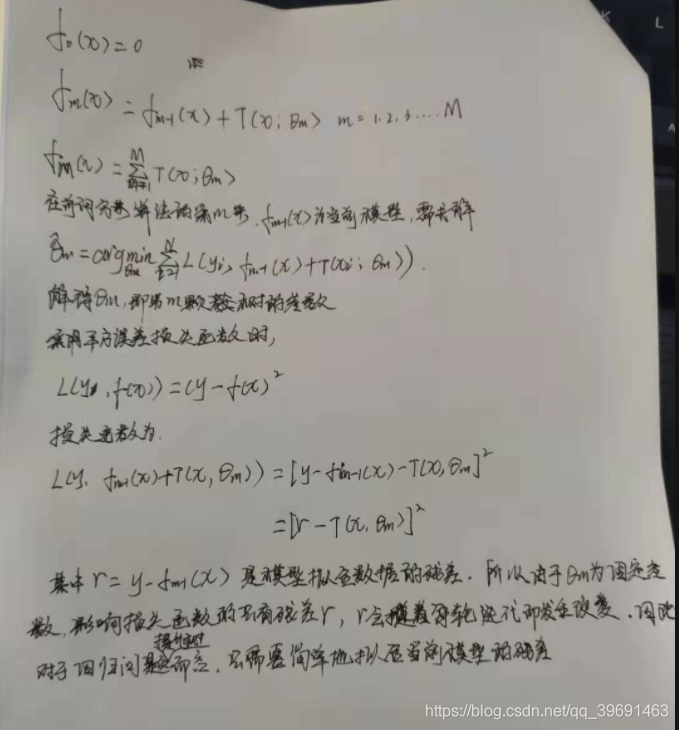 f₀(x)=0
fm(x) = fm-1(x) + T(x; θm) m = 1.2.3....M
fM(x) = ∑ᴹm=1 T(x; θm)
在前向分步算法的第m步, fm-1(x)为当前模型, 需求解
θ̂m = arg min θm ∑ᴺi=1 L(yi, fm-1(x)+T(xi; θm)).
解得θm, 即第m颗树的参数
采用平方误差损失函数时,
L(y, f(x)) = (y-f(x))²
损失函数为.
L(y. fm-1(x)+T(x, θm)) = [y-fm-1(x)-T(x, θm)]²
= [r-T(x, θm)]²
其中 r = y-fm-1(x) 是模型拟合数据的残差. 所以由于θm为固定参
数, 影响损失函数的只有残差r, r会随着每轮迭代而发生改变. 因此
提升树
对于回归问题而言, 只需要简单地拟合当前模型的残差
K
L
https://blog.csdn.net/qq_39691463